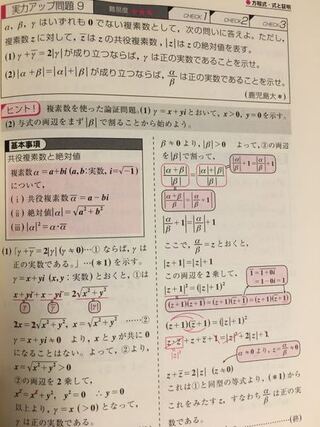 方程式・式と証明
実力アップ問題 9 難易度 ★★★ CHECK1 CHECK2 CHECK3
α, β, γ はいずれも 0 でない複素数として, 次の問いに答えよ。ただし,
複素数 z に対して, z̄ は z の共役複素数, |z| は z の絶対値を表す。
(1) γ+γ̄=2|γ| が成り立つならば, γ は正の実数であることを示せ。
(2) |α+β|=|α|+|β| が成り立つならば, α/β は正の実数であることを示せ。
(鹿児島大*)
ヒント! 複素数を使った論証問題。(1) γ=x+yi とおいて, x>0, y=0 を示す。
(2) 与式の両辺をまず|β|で割ることから始めよう。
基本事項
共役複素数と絶対値
複素数 α=a+bi (a, b:実数, i=√-1)
について,
(i) 共役複素数 ᾱ=a-bi
(ii) 絶対値|α|=√a²+b²
(iii) |α|²=α・ᾱ
(1)「γ+γ̄=2|γ| (γ≠0)…① ならば, γ は
正の実数である。」…(*1) を示す。
γ=x+yi (x, y:実数) とおくと, ①は
x+yi+x-yi=2√x²+y²
γ γ̄ |γ|
2x=2√x²+y², x=√x²+y² ……②
γ=x+yi≠0 より, x と y が共に 0
になることはない。よって, ②より,
x=√x²+y²>0
②の両辺を 2 乗して,
x²=x²+y², y²=0 ∴y=0
以上より, γ=x (>0) となって,
γ は正の実数である。
β≠0 より, |β|>0 よって, ③の両辺を
|β|で割って,
|α+β|/|β|=|α|+|β|/|β| |α/β|+1=|α/β|+1
|α+β/β|=|α/β+1|
|α/β+1|=|α/β|+1
ここで, α/β=z とおくと,
|z+1|=|z|+1
この両辺を 2 乗して,
|z+1|²=(|z|+1)²
1̄=1+0i
=1-0i=1
(z+1)(z+1)=(z+1)(z̄+1)=(z+1)(z̄+1)
(z+1)(z̄+1)=(|z|+1)²
z・z̄+z+z̄+1=|z|²+2|z|+1
|z|²
α≠0 より, z=α/β≠0
z+z̄=2|z| (z≠0)
これは①と同型の等式より, (*1) から
これをみたす z, すなわち α/β は正の実
数である。 ……(終)